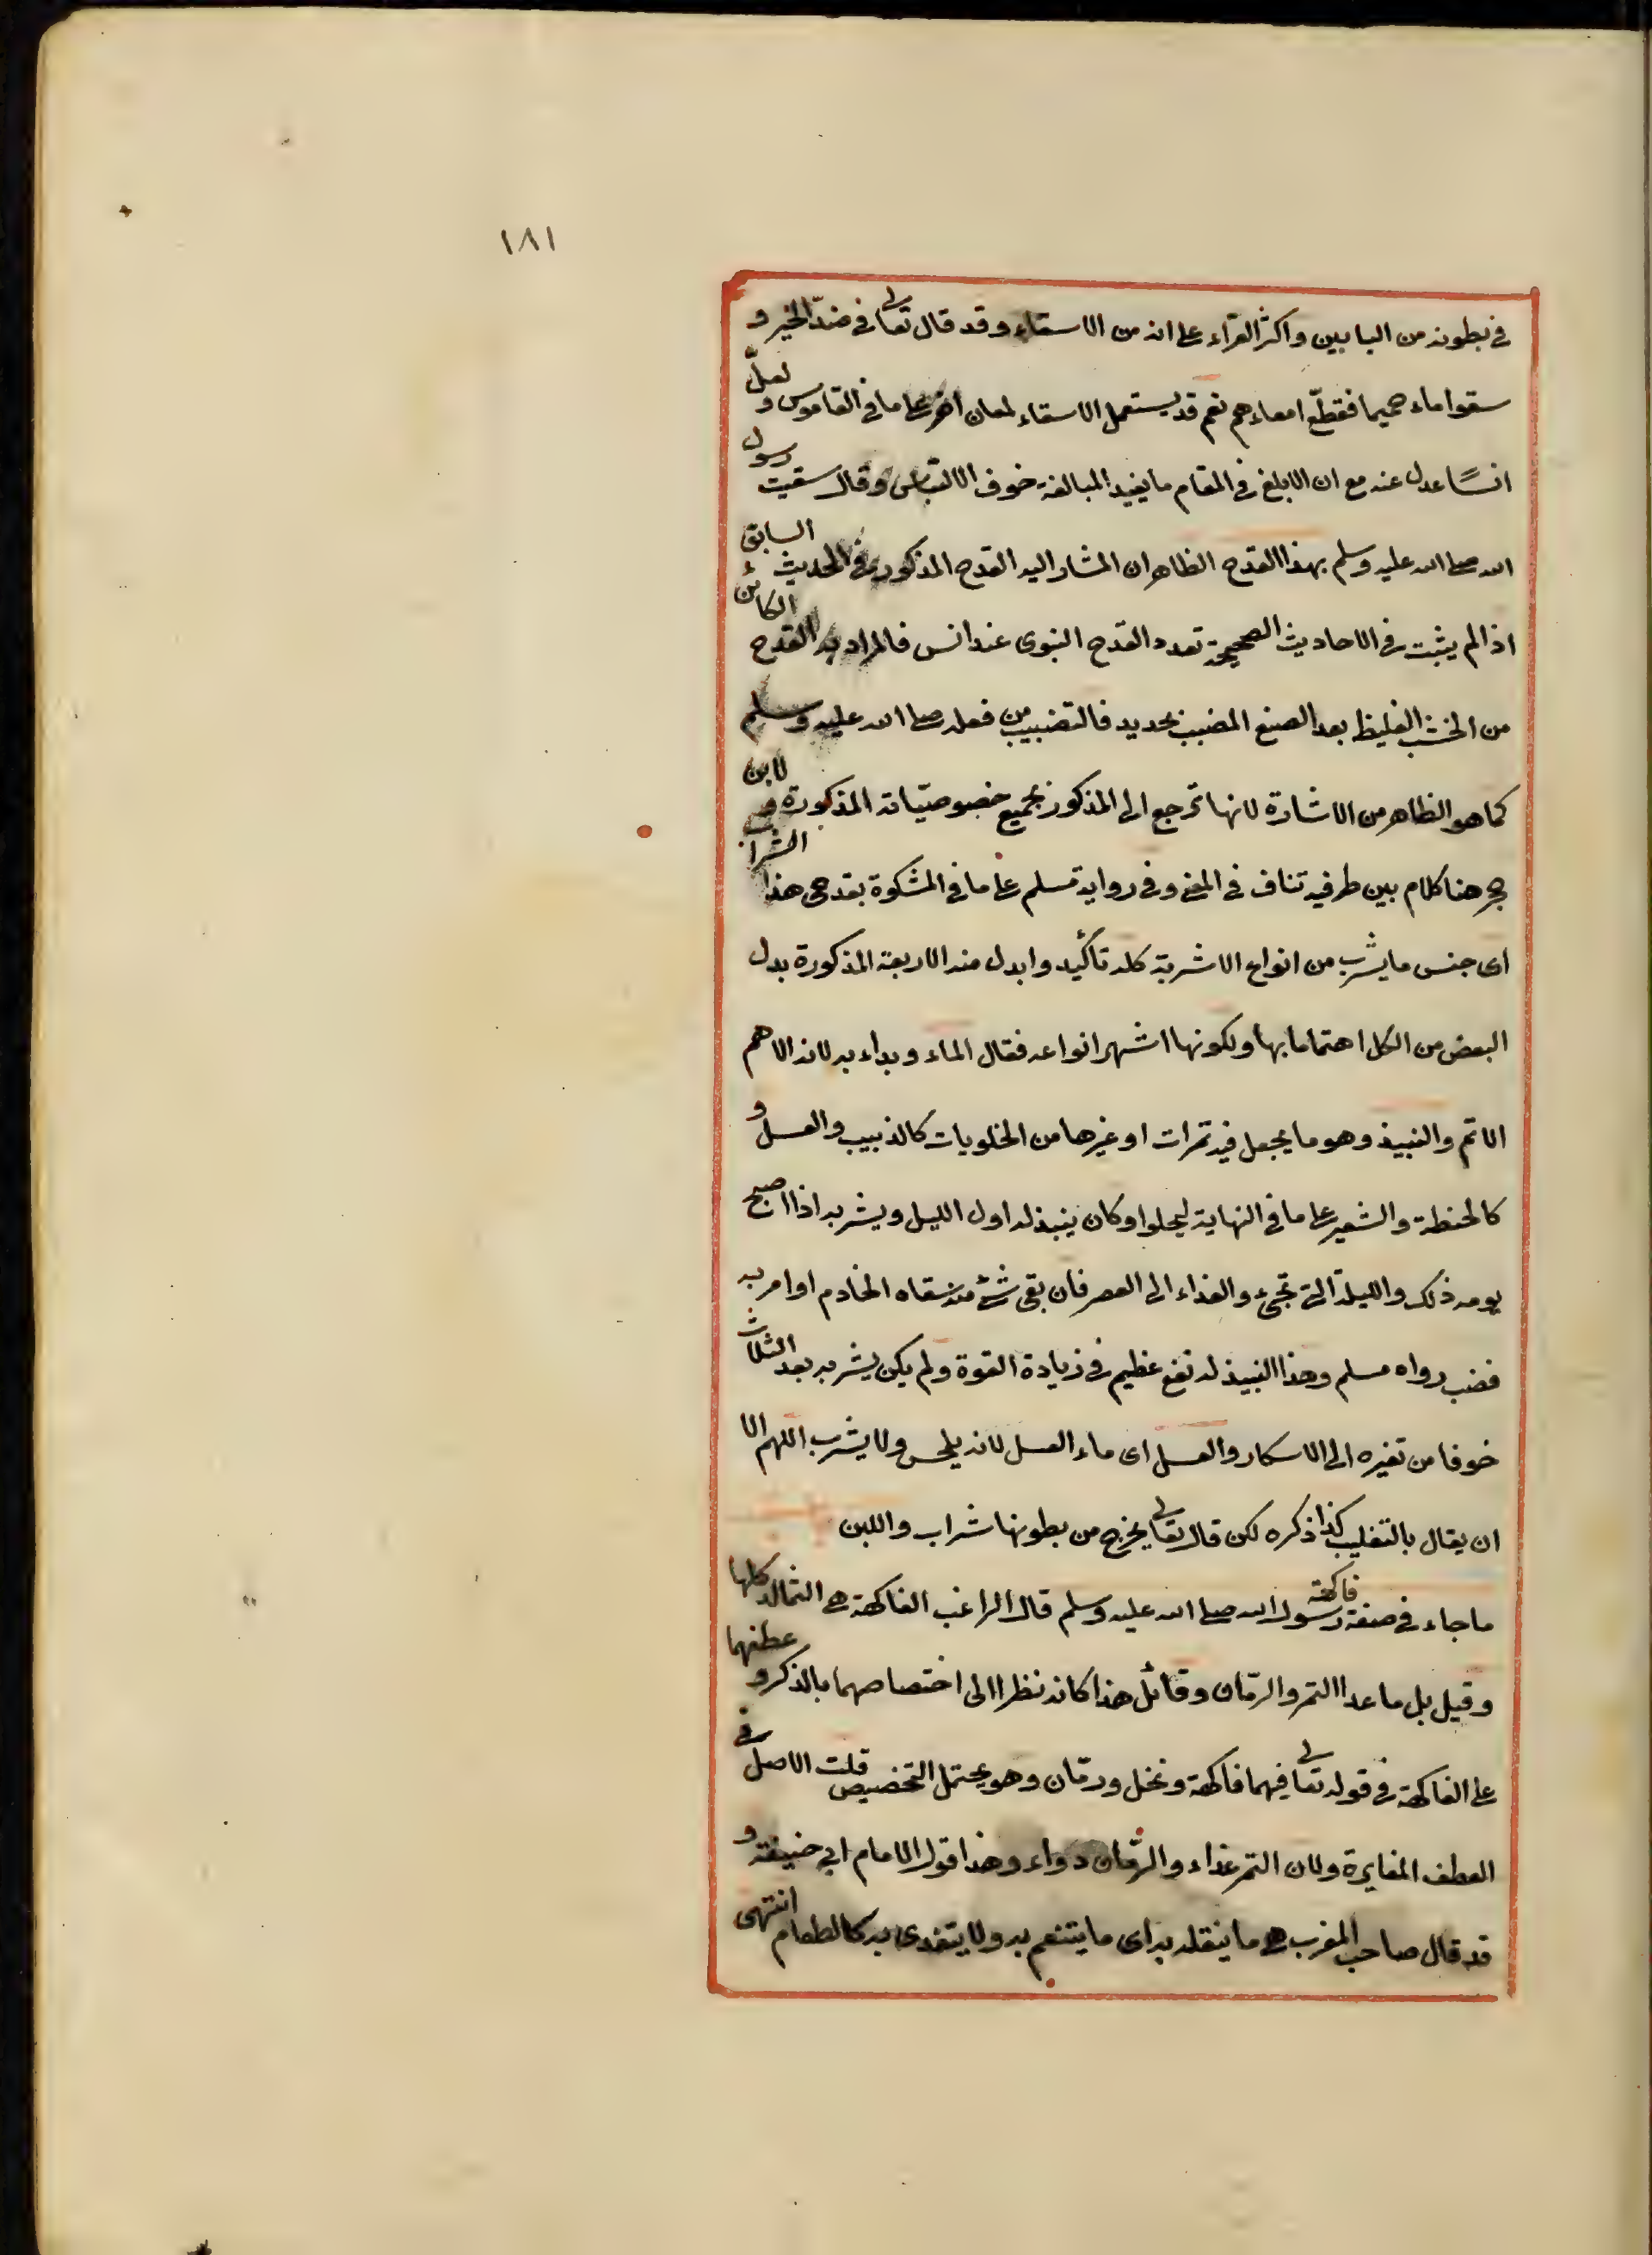 ١٨١
في بطونه من البابين واكثر القرّاء على انه من الاسقاء وقد قال تعالى في ضدّ الخير و
سقوا ماء حميما فقطّع امعاءهم نعم قد يستعمل الاسقاء لمعان اخر على ما في القاموس و لعلّ
انسًا عدل عنه مع ان الابلغ في المقام ما يفيد المبالغة خوف الالتباس وقال سقيت رسول
الله صلى الله عليه وسلم بهذا القدح الظاهر ان المشار اليه القدح المذكور في الحديث السابق
اذا لم يثبت في الاحاديث الصحيحة تعدد القدح النبوى عند انس فالمراد به القدح الكائن
من الخشب الغليظ بعد الصنع المضبب بحديد فالتضبيب من فعله صلى الله عليه وسلم
كما هو الظاهر من الاشارة لانها ترجع الى المذكور بجميع خصوصيّاته المذكورة و لابن
حجر هنا كلام بين طرفيه تناف في المعنى وفى رواية مسلم على ما فى المشكوة بقدحى هذا الشراب
اى جنس ما يشرب من انواع الاشربة كله تأكيد وابدل منه الاربعة المذكورة بدل
البعض من الكل اهتماما بها ولكونها اشهر انواعه فقال الماء وبداء به لانه الاهم
الاتم والنبيذ وهو ما يجعل فيه تمرات او غيرها من الحلويات كالزبيب والعسل و
كالحنطة والشعير على ما فى النهاية ليحلوا وكان ينبذ له اول الليل ويشربه اذا اصبح
يومه ذلك والليلة التى تجىء والغداء الى العصر فان بقى شئ منه سقاه الخادم او امر به
فضب رواه مسلم وهذا النبيذ له نفع عظيم فى زيادة القوة ولم يكن يشربه بعد الثلاث
خوفا من تغيره الى الاسكار والعسل اى ماء العسل لانه يلحس ولا يشرب اللهم الا
ان يقال بالتغليب كذا ذكره لكن قال تعالى يخرج من بطونها شراب واللبن
ما جاء فى صفة فاكهة رسول الله صلى الله عليه وسلم قال الراغب الفاكهة هى الثمار كلها
وقيل بل ما عدا التمر والرمّان وقائل هذا كانه نظرا الى اختصاصهما بالذكر و عطفهما
على الفاكهة فى قوله تعالى فيهما فاكهة ونخل ورمّان وهو يحتمل التخصيص قلت الاصل فى
العطف المغايرة ولان التمر غذاء والرمّان دواء وهذا قول الامام ابى حنيفة و
قد قال صاحب المغرب هى ما ينقله به اى ما يتنعم به ولا يتغدى به كالطعام انتهى